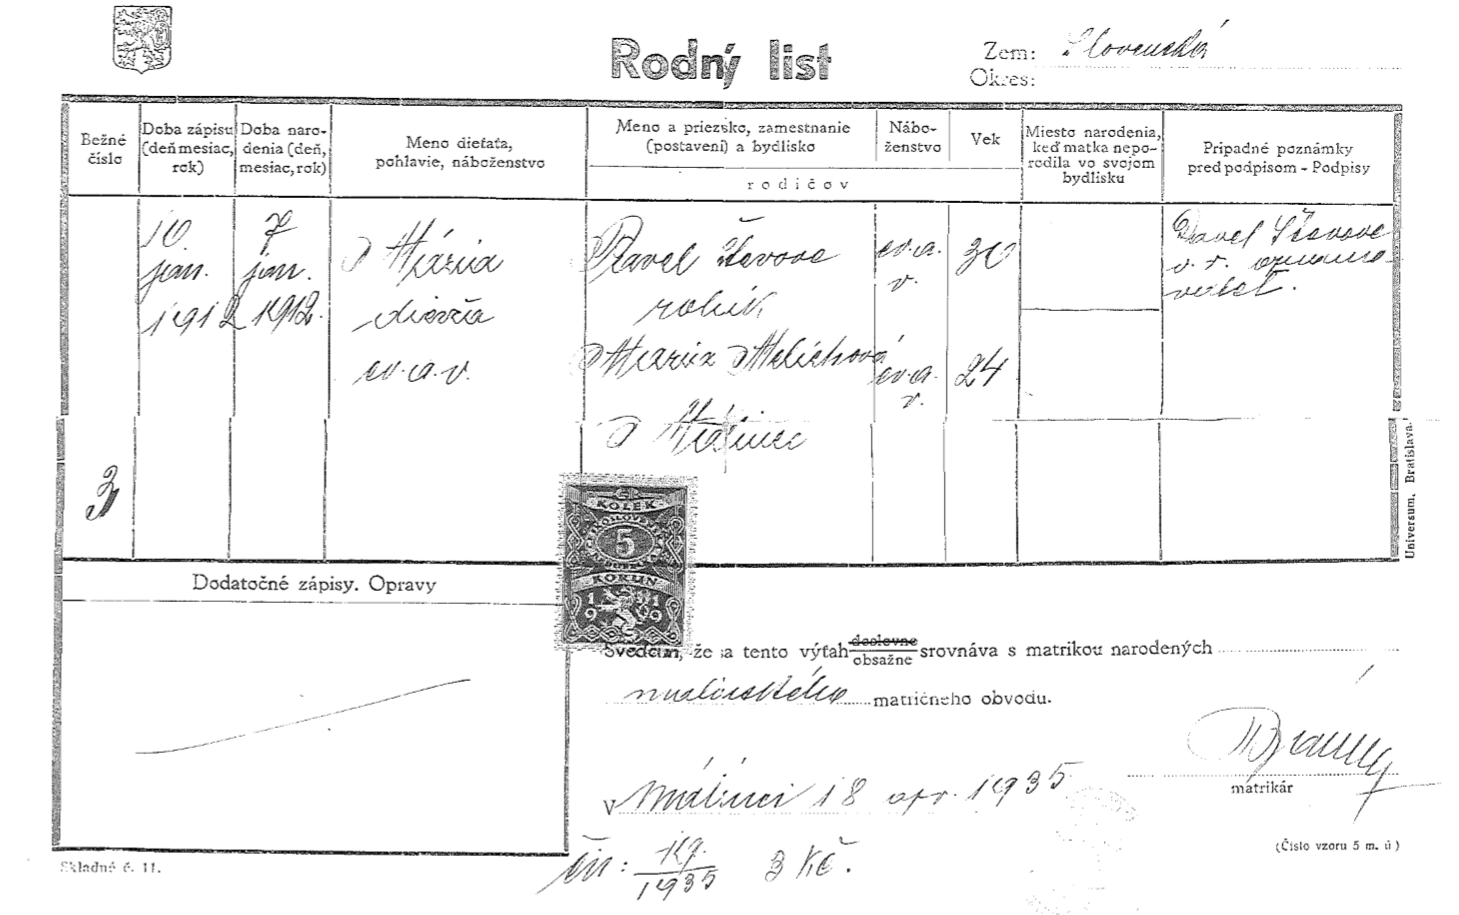 Rodný list
Zem: Slovenská
Okres:
Bežné číslo
Doba zápisu (deň mesiac, rok)
Doba narodenia (deň, mesiac, rok)
Meno dieťaťa, pohlavie, náboženstvo
Meno a priezsko, zamestnanie (postavení) a bydlisko
Nábo-
ženstvo
Vek
rodičov
Miesto narodenia, keď matka nepo-
rodila vo svojom bydlisku
Prípadné poznámky pred podpisom - Podpisy
10. jan. 1912
7 jan. 1912.
Mária
dievča
ev. a. v.
Pavel Števove
roľník
ev. a. v.
30
Mária Melichová
ev. a. v.
24
Málinec
Pavel Števove
v. r.
3
KOLEK
5
KORUN
1919
Dodatočné zápisy. Opravy
Svedčím, že sa tento výťah doslovne
obsažne srovnáva s matrikou narodených
matričného obvodu.
V Málinci 18 apr. 1935
matrikár
čís: 19./1935 3 Kč.
(Číslo vzoru 5 m. ú)
Skladné č. 11.
Universum, Bratislava.